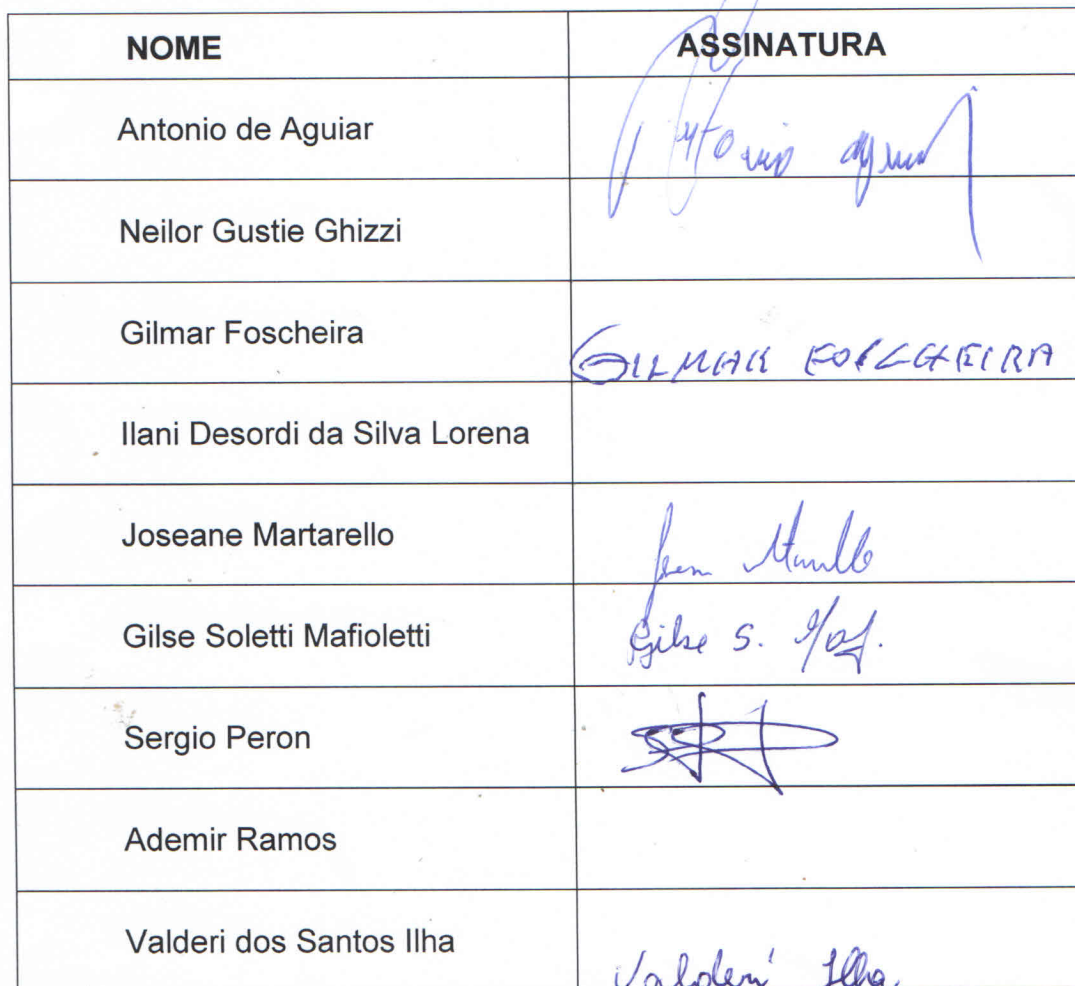 NOME ASSINATURA
Antonio de Aguiar Antonio
Neilor Gustie Ghizzi
Gilmar Foscheira GILMAR FOSCHEIRA
Ilani Desordi da Silva Lorena
Joseane Martarello
Gilse Soletti Mafioletti Gilse S. Maf.
Sergio Peron
Ademir Ramos
Valderi dos Santos Ilha Valderi Ilha